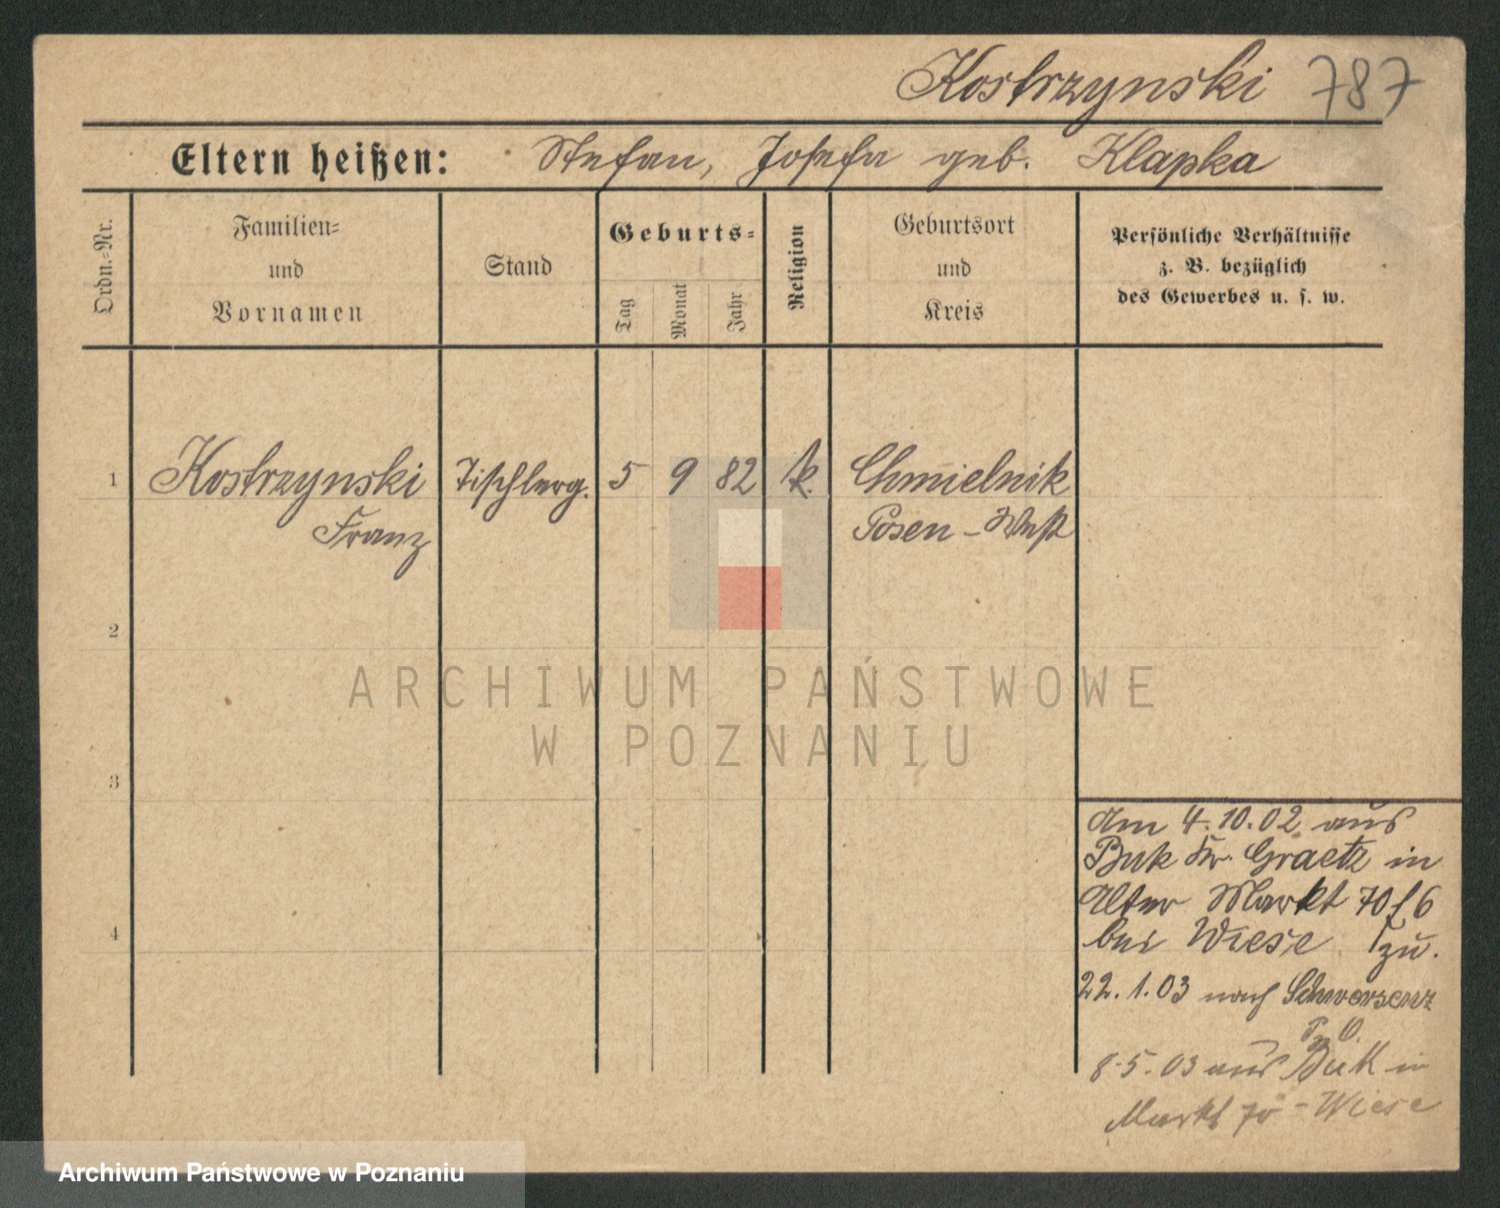 Kostrzynski 787
Eltern heißen: Stefan, Josefa geb. Klapka
Ordn.-Nr.
Familien-
und
Vornamen
Stand
Geburts-
Tag
Monat
Jahr
Religion
Geburtsort
und
Kreis
Persönliche Verhältnisse
z. B. bezüglich
des Gewerbes u. s. w.
1 Kostrzynski Tischlerg. 5 9 82 k. Chmielnik
Franz Posen-West
2
3
4
Am 4.10.02 aus
Buk Kr. Graetz in
Alter Markt 70
bei Wiese zu.
22.1.03 nach Schwersenz
P. O.
8.5.03 aus Buk in
Markt 70 - Wiese
ARCHIWUM PAŃSTWOWE
W POZNANIU
Archiwum Państwowe w Poznaniu